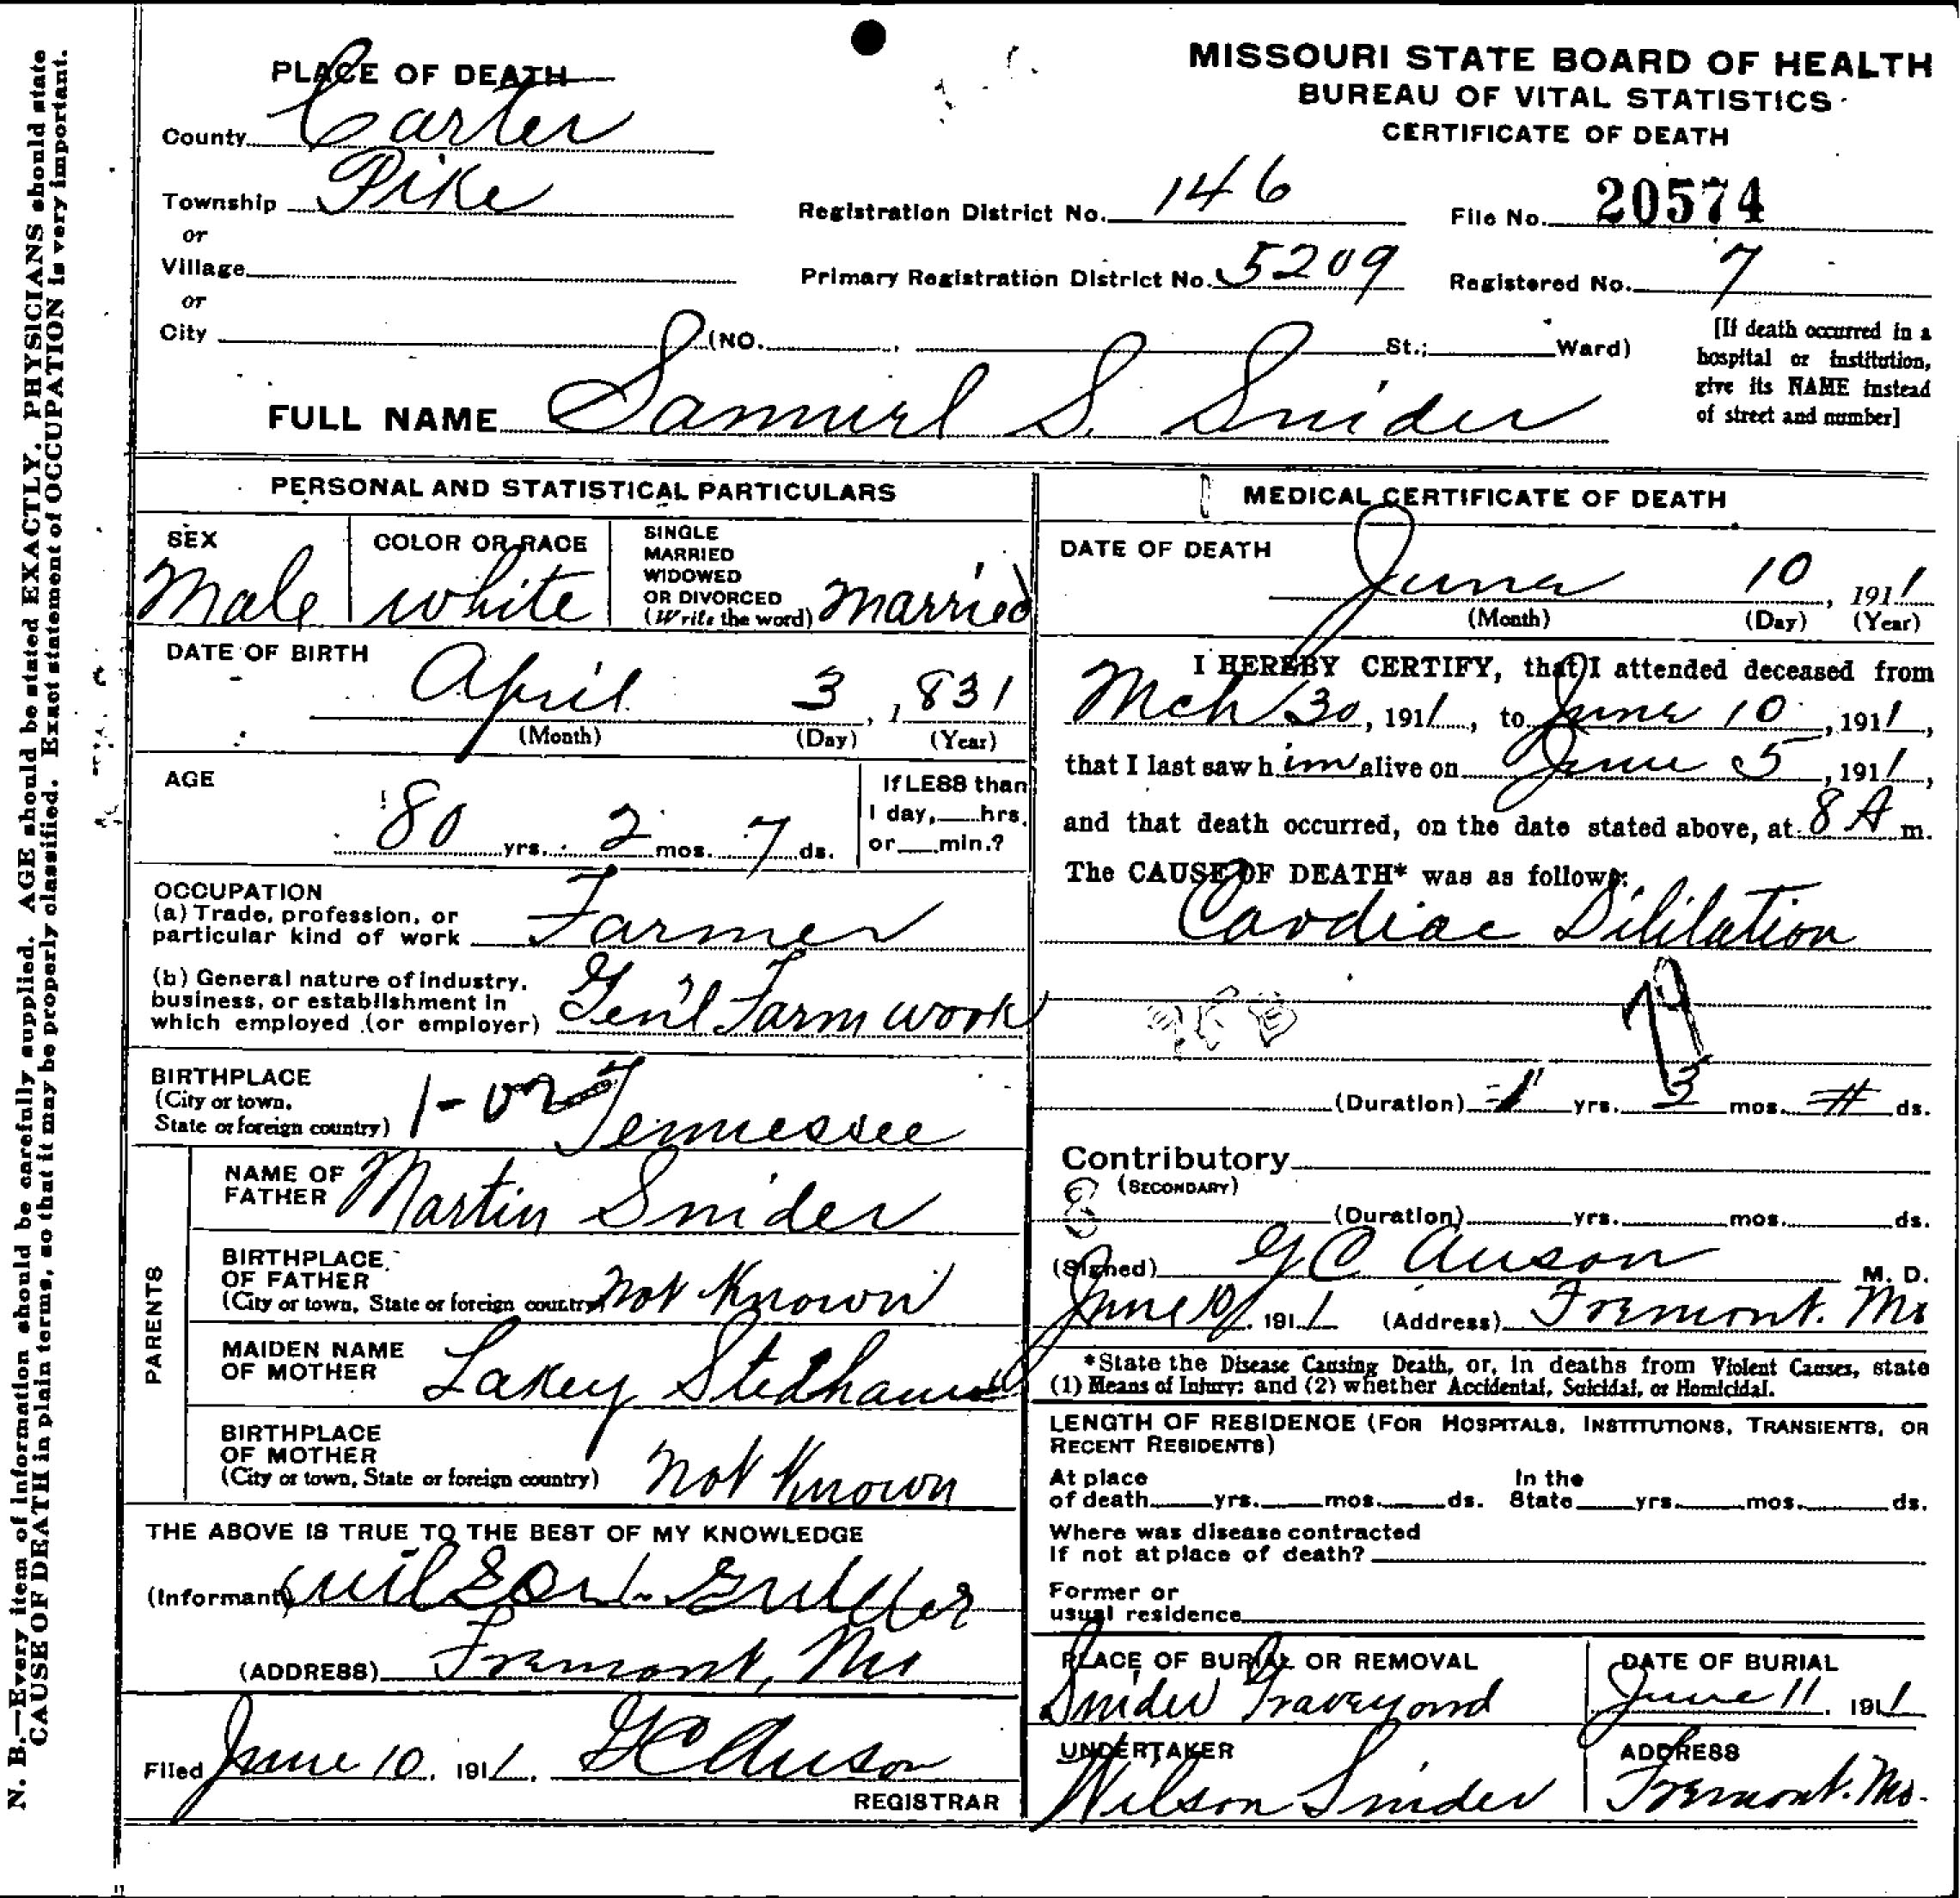 N. B.—Every item of information should be carefully supplied. AGE should be stated EXACTLY. PHYSICIANS should state
CAUSE OF DEATH in plain terms, so that it may be properly classified. Exact statement of OCCUPATION is very important.
MISSOURI STATE BOARD OF HEALTH
BUREAU OF VITAL STATISTICS
CERTIFICATE OF DEATH
PLACE OF DEATH
County Carter
Township Pike
or
Village
or
City (NO. St.; Ward)
Registration District No. 146 File No. 20574
Primary Registration District No. 5209 Registered No. 7
[If death occurred in a
hospital or institution,
give its NAME instead
of street and number]
FULL NAME Samuel S. Snider
PERSONAL AND STATISTICAL PARTICULARS
SEX Male
COLOR OR RACE white
SINGLE
MARRIED
WIDOWED
OR DIVORCED
(Write the word) married
DATE OF BIRTH
April 3, 1831
(Month) (Day) (Year)
AGE
80 yrs. 2 mos. 7 ds.
If LESS than
1 day, hrs.
or min.?
OCCUPATION
(a) Trade, profession, or
particular kind of work Farmer
(b) General nature of industry,
business, or establishment in
which employed (or employer) Gen'l Farm work
BIRTHPLACE
(City or town,
State or foreign country) Tennessee
PARENTS
NAME OF
FATHER Martin Snider
BIRTHPLACE
OF FATHER
(City or town, State or foreign country) not Known
MAIDEN NAME
OF MOTHER Lakey
BIRTHPLACE
OF MOTHER
(City or town, State or foreign country) not Known
THE ABOVE IS TRUE TO THE BEST OF MY KNOWLEDGE
(Informant) wilson
(ADDRESS) Fremont, Mo
Filed June 10, 1911, G C Auson
REGISTRAR
MEDICAL CERTIFICATE OF DEATH
DATE OF DEATH
June 10, 1911
(Month) (Day) (Year)
I HEREBY CERTIFY, that I attended deceased from
Mch 30, 1911, to June 10, 1911,
that I last saw him alive on June 5, 1911,
and that death occurred, on the date stated above, at 8 A m.
The CAUSE OF DEATH* was as follows:
Cardiac Dililation
(Duration) 1 yrs. 3 mos. ds.
Contributory
(SECONDARY)
(Duration) yrs. mos. ds.
(Signed) G C Auson M. D.
June 10, 1911 (Address) Fremont. Mo
*State the Disease Causing Death, or, in deaths from Violent Causes, state
(1) Means of Injury; and (2) whether Accidental, Suicidal, or Homicidal.
LENGTH OF RESIDENCE (FOR HOSPITALS, INSTITUTIONS, TRANSIENTS, OR
RECENT RESIDENTS)
At place
of death yrs. mos. ds.
In the
State yrs. mos. ds.
Where was disease contracted
If not at place of death?
Former or
usual residence
PLACE OF BURIAL OR REMOVAL
Snider Graveyard
DATE OF BURIAL
June 11, 1911
UNDERTAKER
Wilson Snider
ADDRESS
Fremont. Mo.